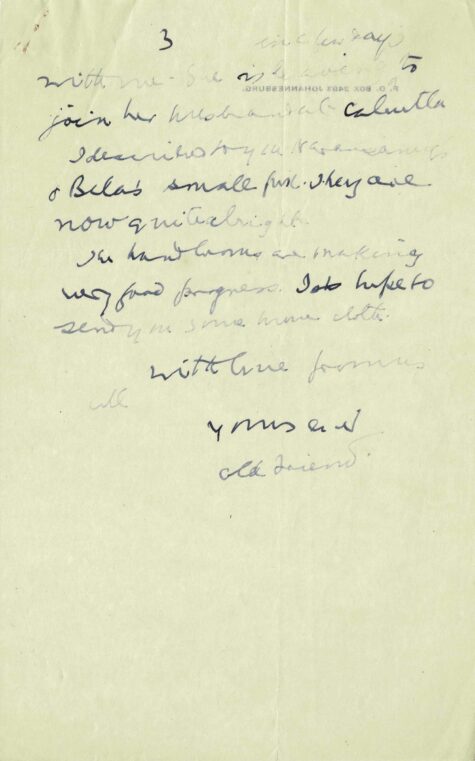 3
in a few days
with me. She is leaving to
P. O. BOX 2493 JOHANNESBURG.
join her husband at Calcutta
I described to you
& Bela's small pox. They are
now quite alright.
The hand looms are making
very good progress. I do hope to
send you some more cloth.
With love from us
all
yours ever
old friend.